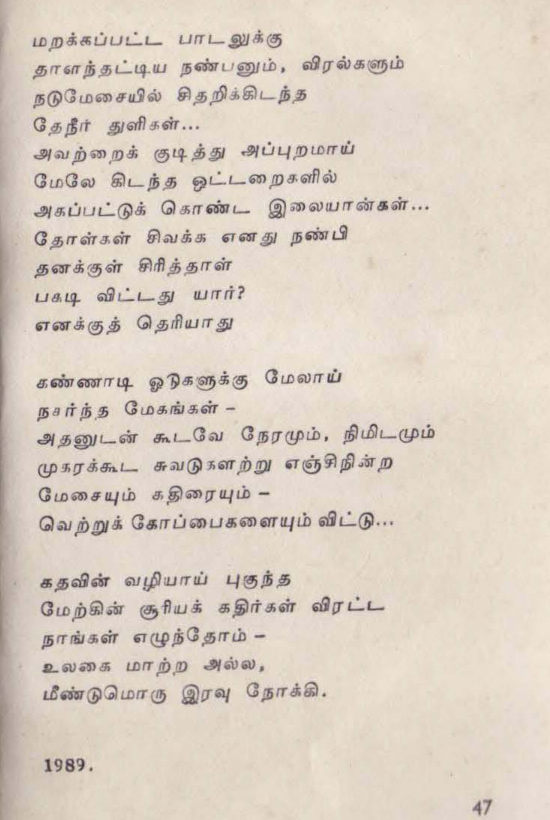 மறக்கப்பட்ட பாடலுக்கு
தாளந்தட்டிய நண்பனும், விரல்களும்
நடுமேசையில் சிதறிக்கிடந்த
தேநீர் துளிகள்...
அவற்றைக் குடித்து அப்புறமாய்
மேலே கிடந்த ஒட்டறைகளில்
அகப்பட்டுக் கொண்ட இலையான்கள்...
தோள்கள் சிவக்க எனது நண்பி
தனக்குள் சிரித்தாள்
பகடி விட்டது யார்?
எனக்குத் தெரியாது

கண்ணாடி ஓடுகளுக்கு மேலாய்
நகர்ந்த மேகங்கள் –
அதனுடன் கூடவே நேரமும், நிமிடமும்
முகரக்கூட சுவடுகளற்று எஞ்சிநின்ற
மேசையும் கதிரையும் –
வெற்றுக் கோப்பைகளையும் விட்டு...

கதவின் வழியாய் புகுந்த
மேற்கின் சூரியக் கதிர்கள் விரட்ட
நாங்கள் எழுந்தோம் –
உலகை மாற்ற அல்ல,
மீண்டுமொரு இரவு நோக்கி.

1989.

47